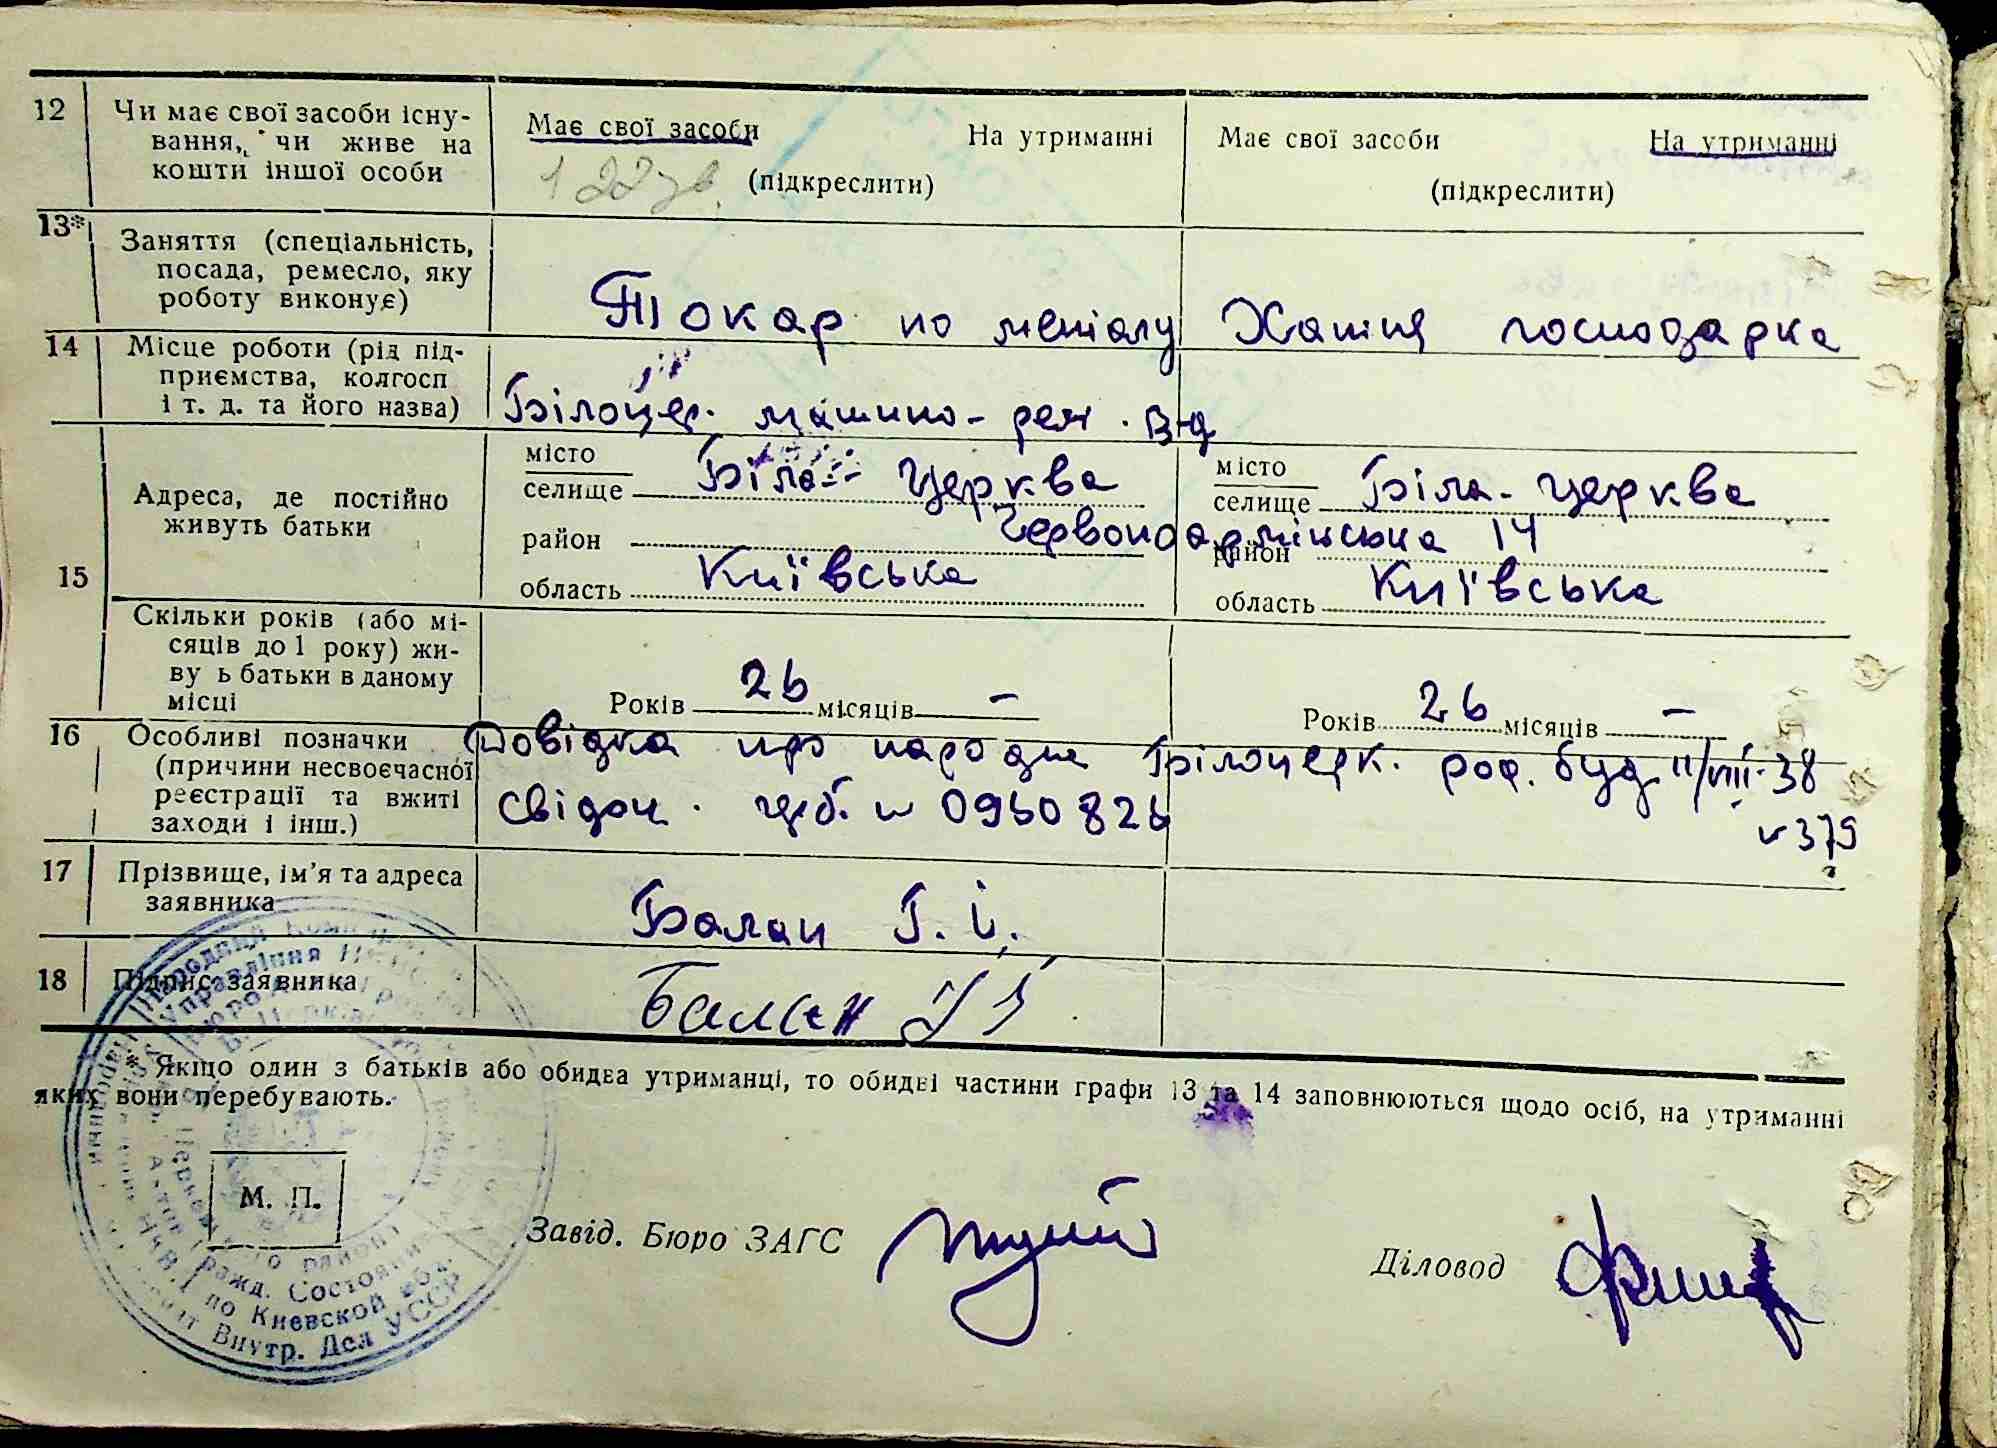 12 Чи має свої засоби існу-
вання, чи живе на
кошти іншої особи
Має свої засоби На утриманні
(підкреслити)
Має свої засоби На утриманні
(підкреслити)
13* Заняття (спеціальність,
посада, ремесло, яку
роботу виконує)
Токар по металу
Хатня господарка
14 Місце роботи (рід під-
приємства, колгосп
і т. д. та його назва)
Білоцер. машино-рем. в-д
15 Адреса, де постійно
живуть батьки
місто
селище Біла-Церква
район
область Київська
місто
селище Біла-Церква
Червоноармійська 14
район
область Київська
Скільки років (або мі-
сяців до 1 року) жи-
ву ь батьки в даному
місці
Років 26 місяців –
Років 26 місяців –
16 Особливі позначки
(причини несвоєчасної
реєстрації та вжиті
заходи і інш.)
Довідка про народже Білоцерк. род. буд 11/VIII-38
№ 379
Свідоц. № 0950826
17 Прізвище, ім'я та адреса
заявника
Балан Г. І.
18 Підпис заявника
Балан
* Якщо один з батьків або обидва утриманці, то обидві частини графи 13 та 14 заповнюються щодо осіб, на утриманні
яких вони перебувають.
М. П.
Завід. Бюро ЗАГС
Діловод
Управління
гражд. Состояния
по Киевской обл.
Внутр. Дел УССР